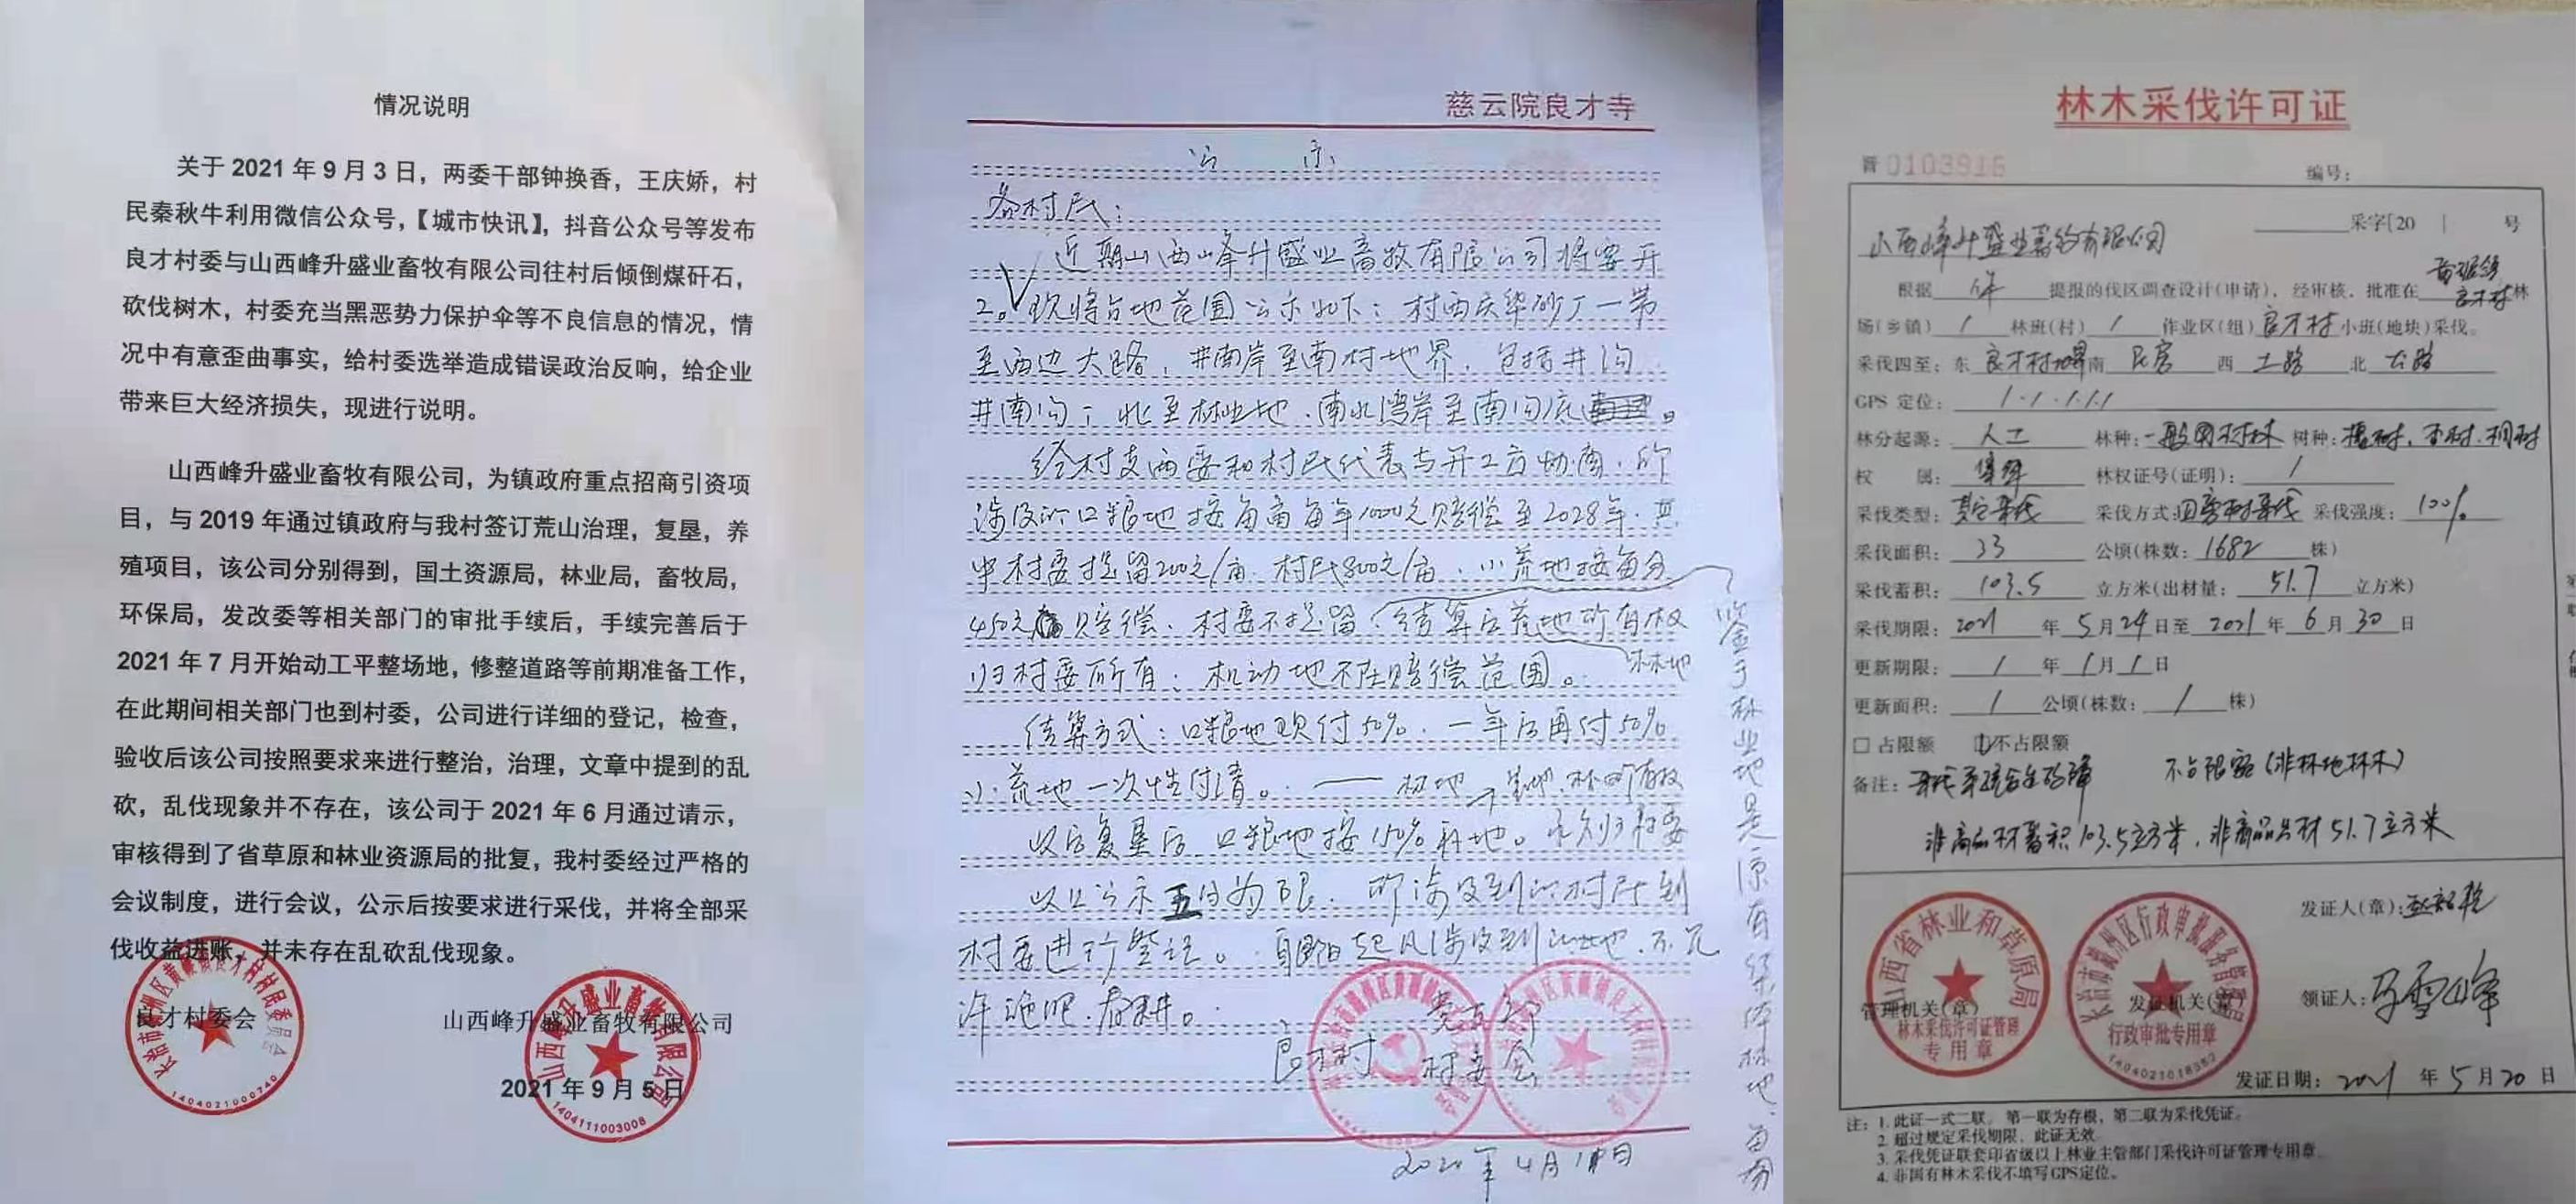 情况说明
关于 2021 年 9 月 3 日，两委干部钟换香，王庆娇，村
民秦秋牛利用微信公众号，【城市快讯】，抖音公众号等发布
良才村委与山西峰升盛业畜牧有限公司往村后倾倒煤矸石，
砍伐树木，村委充当黑恶势力保护伞等不良信息的情况，情
况中有意歪曲事实，给村委选举造成错误政治反响，给企业
带来巨大经济损失，现进行说明。
山西峰升盛业畜牧有限公司，为镇政府重点招商引资项
目，与 2019 年通过镇政府与我村签订荒山治理，复垦，养
殖项目，该公司分别得到，国土资源局，林业局，畜牧局，
环保局，发改委等相关部门的审批手续后，手续完善后于
2021 年 7 月开始动工平整场地，修整道路等前期准备工作，
在此期间相关部门也到村委，公司进行详细的登记，检查，
验收后该公司按照要求来进行整治，治理，文章中提到的乱
砍，乱伐现象并不存在，该公司于 2021 年 6 月通过请示，
审核得到了省草原和林业资源局的批复，我村委经过严格的
会议制度，进行会议，公示后按要求进行采伐，并将全部采
伐收益进账，并未存在乱砍乱伐现象。
良才村委会
山西峰升盛业畜牧有限公司
2021 年 9 月 5 日
1404021000740
山西峰升盛业畜牧有限公司
1404111003008
慈云院良才寺
公示
各村民：
近期山西山峰升盛业畜牧有限公司将要开
工。现将占地范围公示如下：村西庆华砂厂一带
至西边大路，井南岸至南村地界，包括井沟
井南沟；北至林业地，南北湾岸至南沟底。
经村支两委和村民代表与开工方协商，所
涉及的口粮地按每亩每年1000元赔偿至2028年，其
中村委提留200元/亩，村民800元/亩，小荒地按每分
450元赔偿，村委不提留（结算后荒地所有权
归村委所有；机动地不在赔偿范围。
林地
结算方式：口粮地现付50%，一年后再付50%
小荒地一次性付清。
以后复垦后，口粮地按150%补地。
以上公示五日为限，所涉及到的村民到
村委进行登记。
许施肥，春耕。
良才村 党支部
村委会
年4月
林业地是原有集体林地
林木采伐许可证
晋 0103916
编号：
采字[20 ] 号
山西峰升盛业畜牧有限公司
根据 提报的伐区调查设计(申请)，经审核，批准在 黄碾镇良才村 林
场(乡镇) / 林班(村) / 作业区(组) 良才村 小班(地块)采伐。
采伐四至：东 良才村地界 南 民房 西 土路 北 公路
GPS 定位： / . / . / . / . /
林分起源： 人工 林种：一般用材林 树种：槐树，杏树，桐树
权 属： 集体 林权证号(证明)： /
采伐类型： 其它采伐 采伐方式： 采伐强度： 100%
采伐面积： 33 公顷(株数： 1682 株)
采伐蓄积： 103.5 立方米(出材量： 51.7 立方米)
采伐期限： 2021 年 5 月 24 日至 2021 年 6 月 30 日
更新期限： / 年 / 月 / 日
更新面积： / 公顷(株数： / 株)
□ 占限额 不占限额
备注： 不占限额(非林地林木)
非商品材蓄积103.5立方米，非商品出材51.7立方米
山西省林业和草原局
管理机关(章)
林木采伐许可证管理
专用章
长治市潞州区行政审批服务管理局
发证机关(章)
行政审批专用章
1404021018362
发证人(章)：
领证人：
发证日期： 2021 年 5 月 20 日
注：1. 此证一式二联。第一联为存根，第二联为采伐凭证。
2. 超过规定采伐期限，此证无效。
3. 采伐凭证联套印省级以上林业主管部门采伐许可证管理专用章。
4. 非国有林木采伐不填写GPS定位。